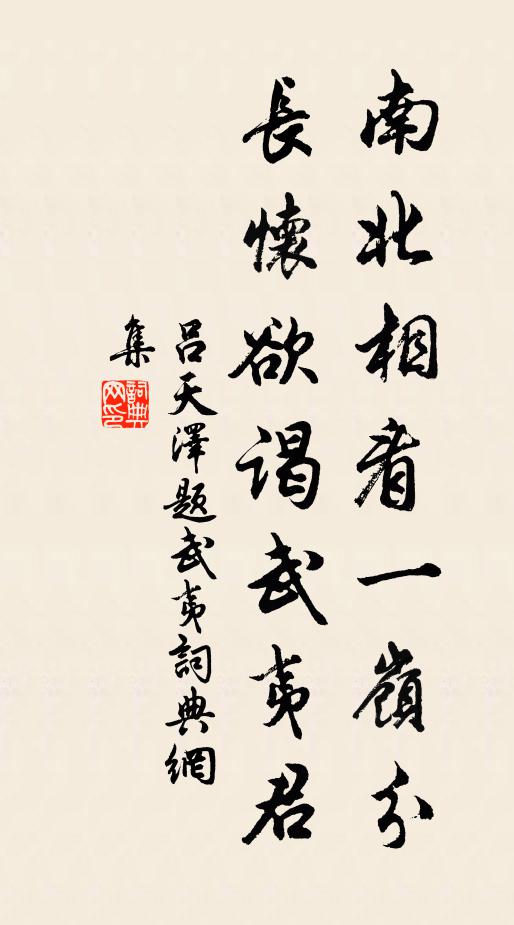 南北相看一嶺分
長懷欲谒武夷君
吕天澤題武夷詞典網
集
詞典
网印